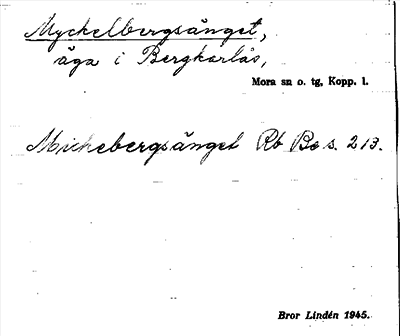 Myckelbergsänget,
äga i Bergkarlås,
Mora sn o. tg, Kopp. l.
Michebergsänget Rb Be s. 213.
Bror Lindén 1945.